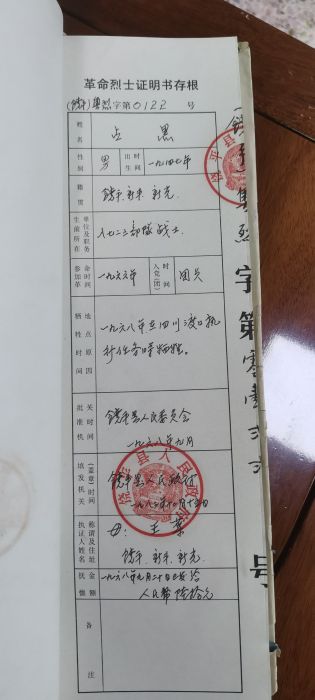 革命烈士证明书存根
(饶平)县烈字第0122号
姓名 占黑
性别 男 出生时间 一九四七年
籍贯 饶平、新丰、新光
生前所在单位及职务 八七二三部队战士
参加革命时间 一九六六年 入党(团)时间 团员
牺牲时间地点原因 一九六八年在四川渡口执
行任务时牺牲。
批准机关时间 饶平县人民委员会
一九六八年九月
填发机关(盖章)时间 饶平县人民政府
一九八三年
执证人姓名称谓及住址 母:
饶平、新丰、新光
抚恤金额 一九六八年九月二十日已发给
人民币
备注
饶平县人民政府
字第零壹贰贰号